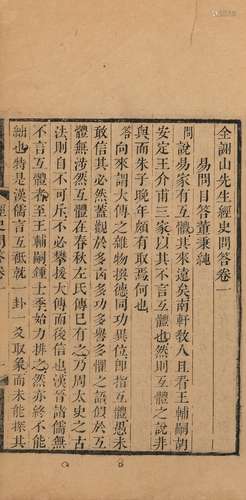 全謝山先生經史問答卷一
易問目答董秉純
問說易家有互體其來遠矣南軒教人且看王輔嗣胡
安定王介甫三家以其不言互體也然則互體之說非
與而朱子晚年頗有取焉何也
答向來謂大傳之雜物撰德同功異位即指互體愚未
敢信其必然蓋觀於多凶多功多譽多懼之語似於互
體無涉然互體在春秋左氏傳已有之乃周太史之古
法則自不可斥不必攀援大傳而後信也漢晉諸儒無
不言互體者至王輔嗣鍾士季始力排之然亦終不能
絀也特是漢儒言互體祗就一卦一爻取象而未能探其
經史問答卷一